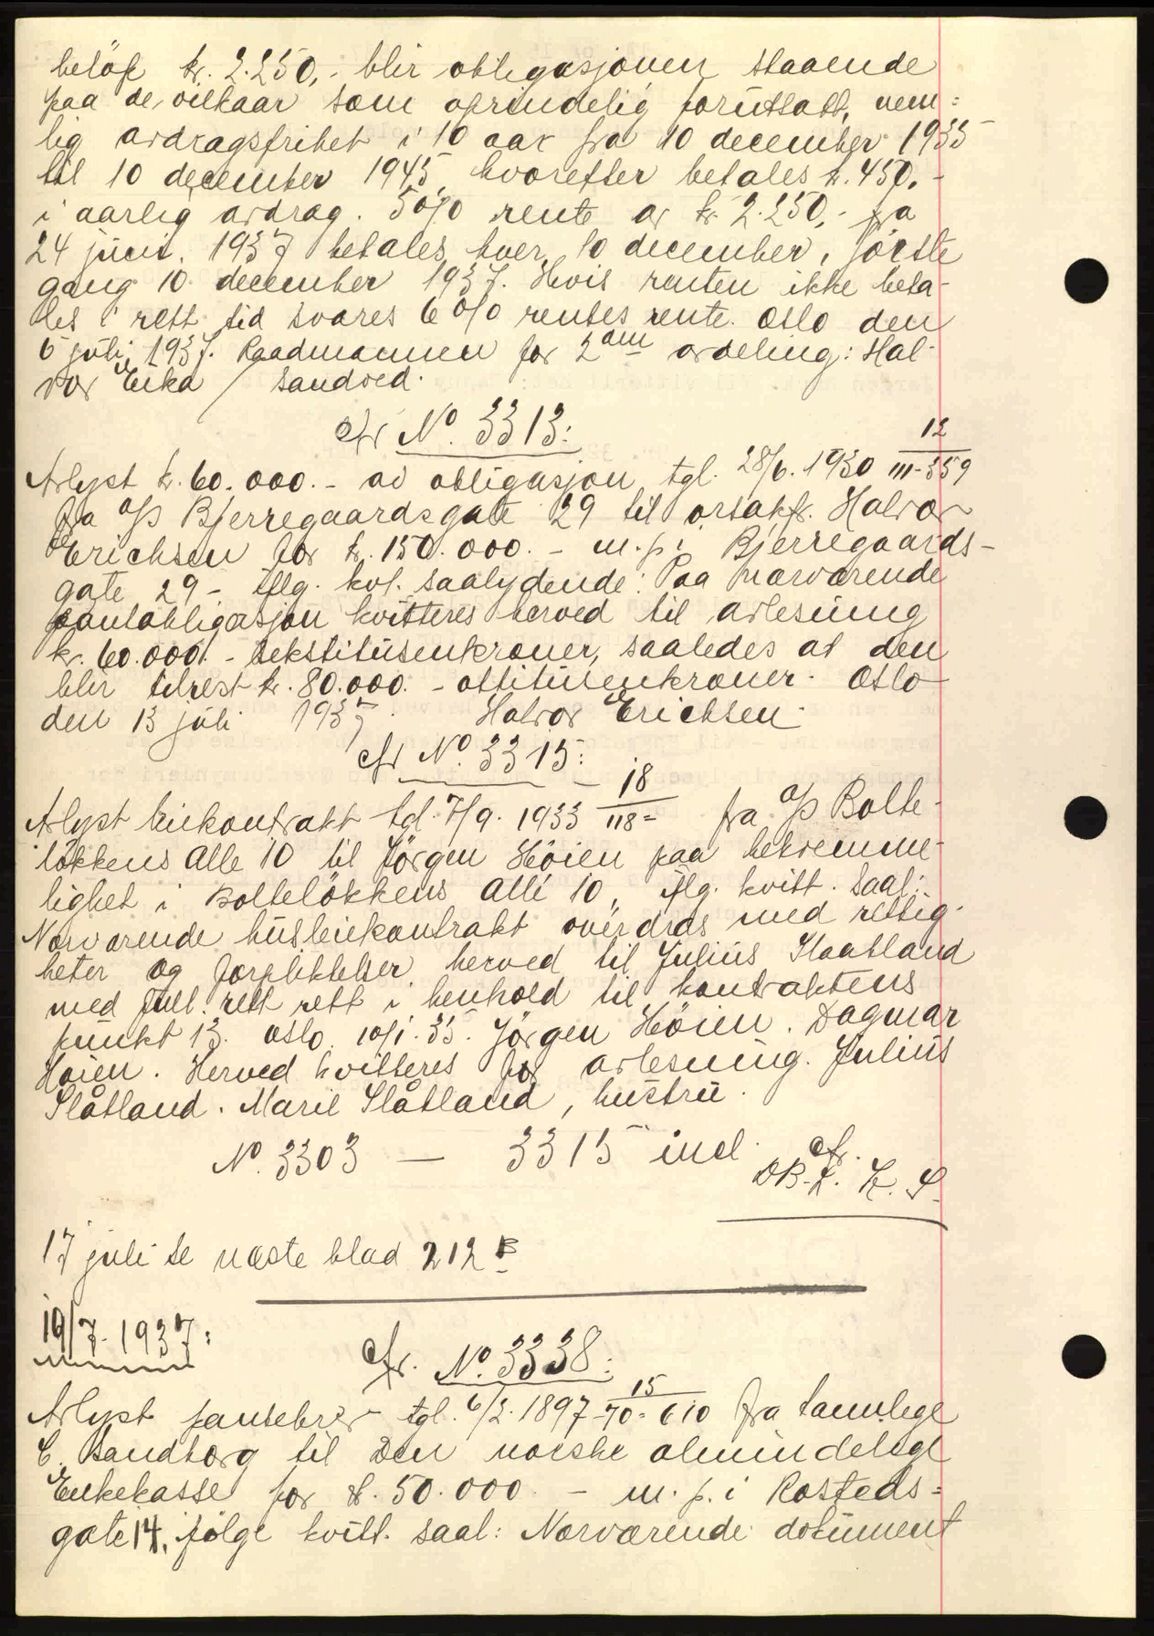 beløp kr. 2.250,- blir obligasjonen staaende
paa de vilkaar som oprindelig forutsatt, nem=
lig avdragsfrihet i 10 aar fra 10 december 1935
til 10 december 1945, hvorefter betales kr. 450,-
i aarlig avdrag. 5% rente av kr. 2.250,- fra
24 juni 1937 betales hver 10 december, første
gang 10 december 1937. Hvis renten ikke beta-
les i rett tid svares 6% rentes rente. Oslo den
6 juli 1937. Raadmannen for 2 avdeling: Hal-
vor Eika / Sandved.
cfr No. 3313:
Avlyst kr. 60.000.- av obligasjon tgl. 28/6. 1930 12/III-359
fra A/S Bjerregaardsgate 29 til o.r.sakf. Halvor
Erichsen for kr. 150.000.- m.p. i Bjerregaards-
gate 29 - iflg. kvl. saalydende: Paa nærværende
pantobligasjon kvitteres herved til avlesning
kr. 60.000.- sekstitusenkroner, saaledes at den
blir tilrest kr. 80.000.- ottitusenkroner. Oslo
den 13 juli 1937. Halvor Erichsen.
cfr No. 3315:
Avlyst leiekontrakt td. 7/9. 1933 18/118= fra A/S Bolte-
løkkens Alle 10 til Jörgen Höien paa bekvemme-
lighet i Bolteløkkens alle 10, iflg. kvitt. saal:
Nærværende husleiekontrakt overdras med rettig-
heter og forpliktelser herved til Julius Slaatland
med full rett rett i henhold til kontraktens
punkt 13. Oslo 10/1. 35. Jörgen Höien. Dagmar
Höien. Herved kvitteres for avlesning. Julius
Slåtland. Marie Slåtland, hustru.
No. 3303 - 3315 incl. cfr.
DB. L. K. S.
17 juli se næste blad 212 B
19/7. 1937:
cfr. No. 3338:
Avlyst pantebrev tgl. 6/2. 1897 15/70-610 fra tannlege
C. Sandborg til Den norske almindelige
Enkekasse for kr. 50.000.- m.p. i Rosteds=
gate 14, ifølge kvitt. saal: Nærværende dokument